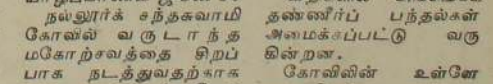 நல்லூர்க் சந்தசுவாமி
கோவில் வருடாந்த
மகோற்சவத்தை சிறப்
பாக நடத்துவதற்காக
தண்ணீர்ப் பந்தல்கள்
அமைக்கப்பட்டு வரு
கின்றன.
கோவிலின் உள்ளே